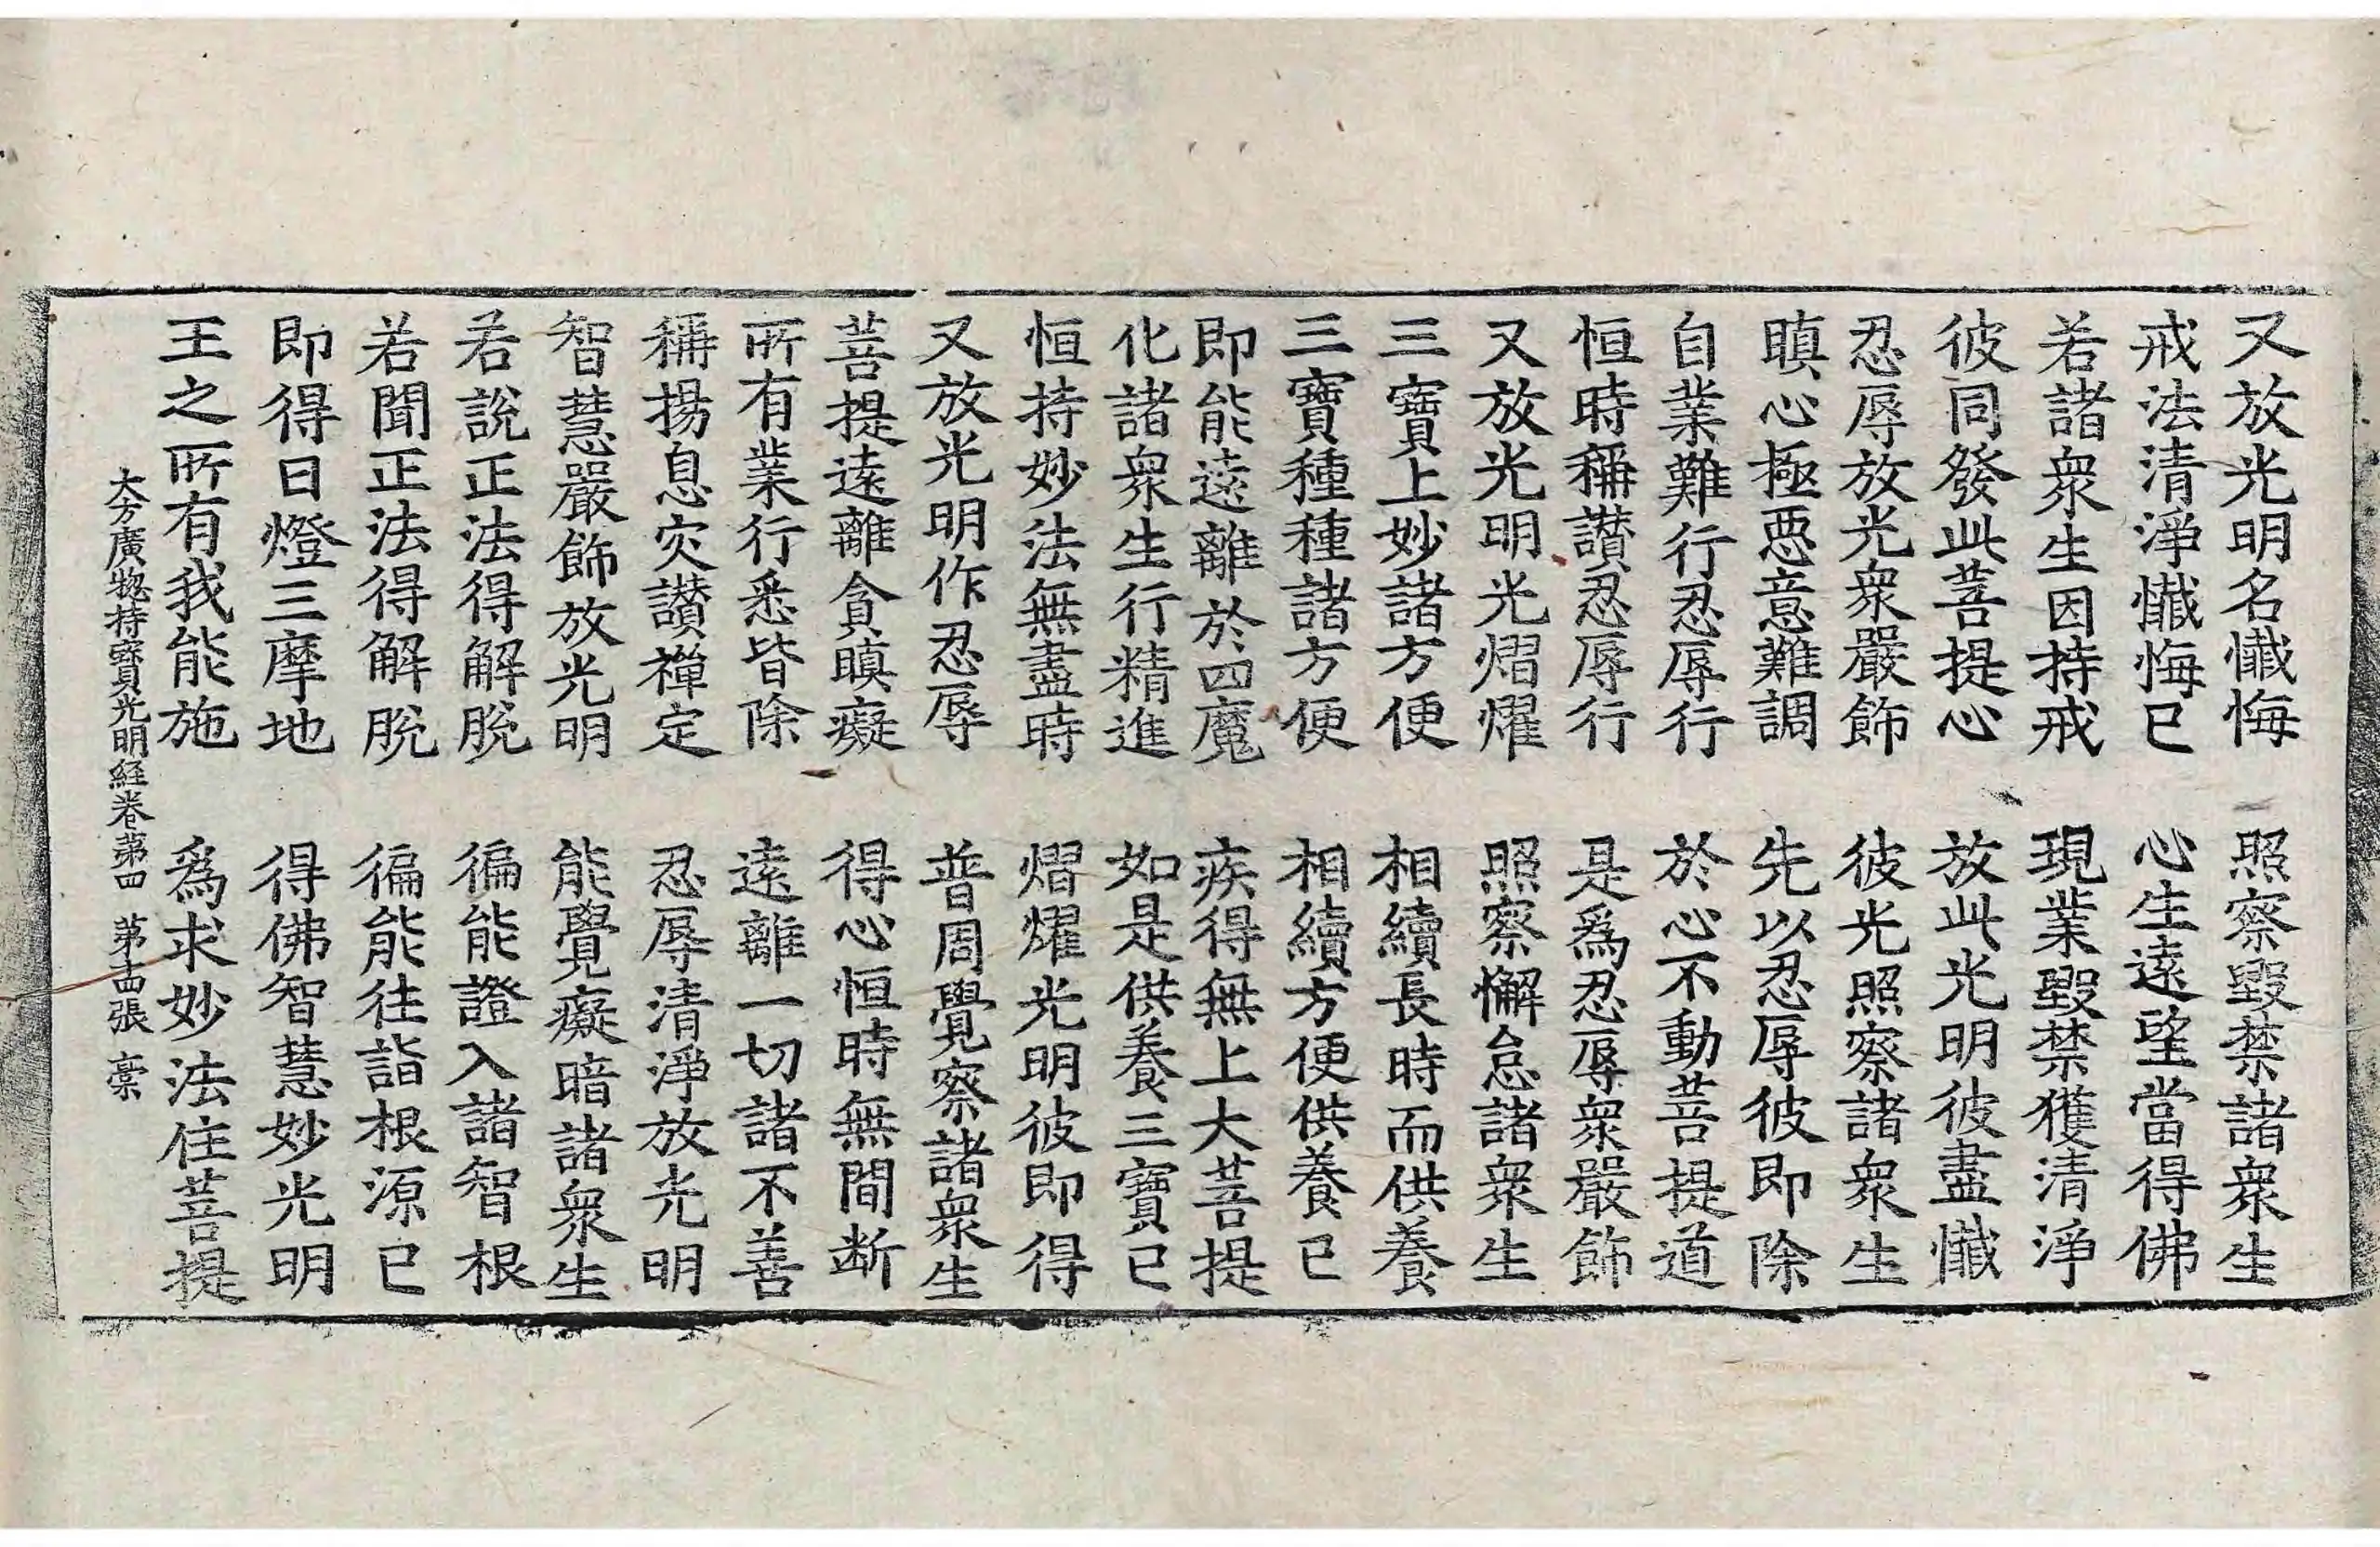 又放光明名懺悔　照察毀禁諸衆生
戒法清淨懺悔已　心生遠望當得佛
若諸衆生因持戒　現業毀禁獲清淨
彼同發此菩提心　放此光明彼盡懺
忍辱放光衆嚴飾　彼光照察諸衆生
瞋心極惡意難調　先以忍辱彼即除
自業難行忍辱行　於心不動菩提道
恒時稱讃忍辱行　是爲忍辱衆嚴飾
又放光明光熠燿　照察懈怠諸衆生
三寶上妙諸方便　相續長時而供養
三寶種種諸方便　相續方便供養已
即能遠離於四魔　疾得無上大菩提
化諸衆生行精進　如是供養三寶已
恒持妙法無盡時　熠燿光明彼即得
又放光明作忍辱　普周覺察諸衆生
菩提遠離貪瞋癡　得心恒時無間断
所有業行悉皆除　遠離一切諸不善
稱揚息灾讃禪定　忍辱清淨放光明
智慧嚴飾放光明　能覺癡暗諸衆生
若說正法得解脫　徧能證入諸智根
若聞正法得解脫　徧能往詣根源已
即得日燈三摩地　得佛智慧妙光明
王之所有我能施　爲求妙法住菩提
大方廣揔持寳光明経卷苐四　苐十四張　稾